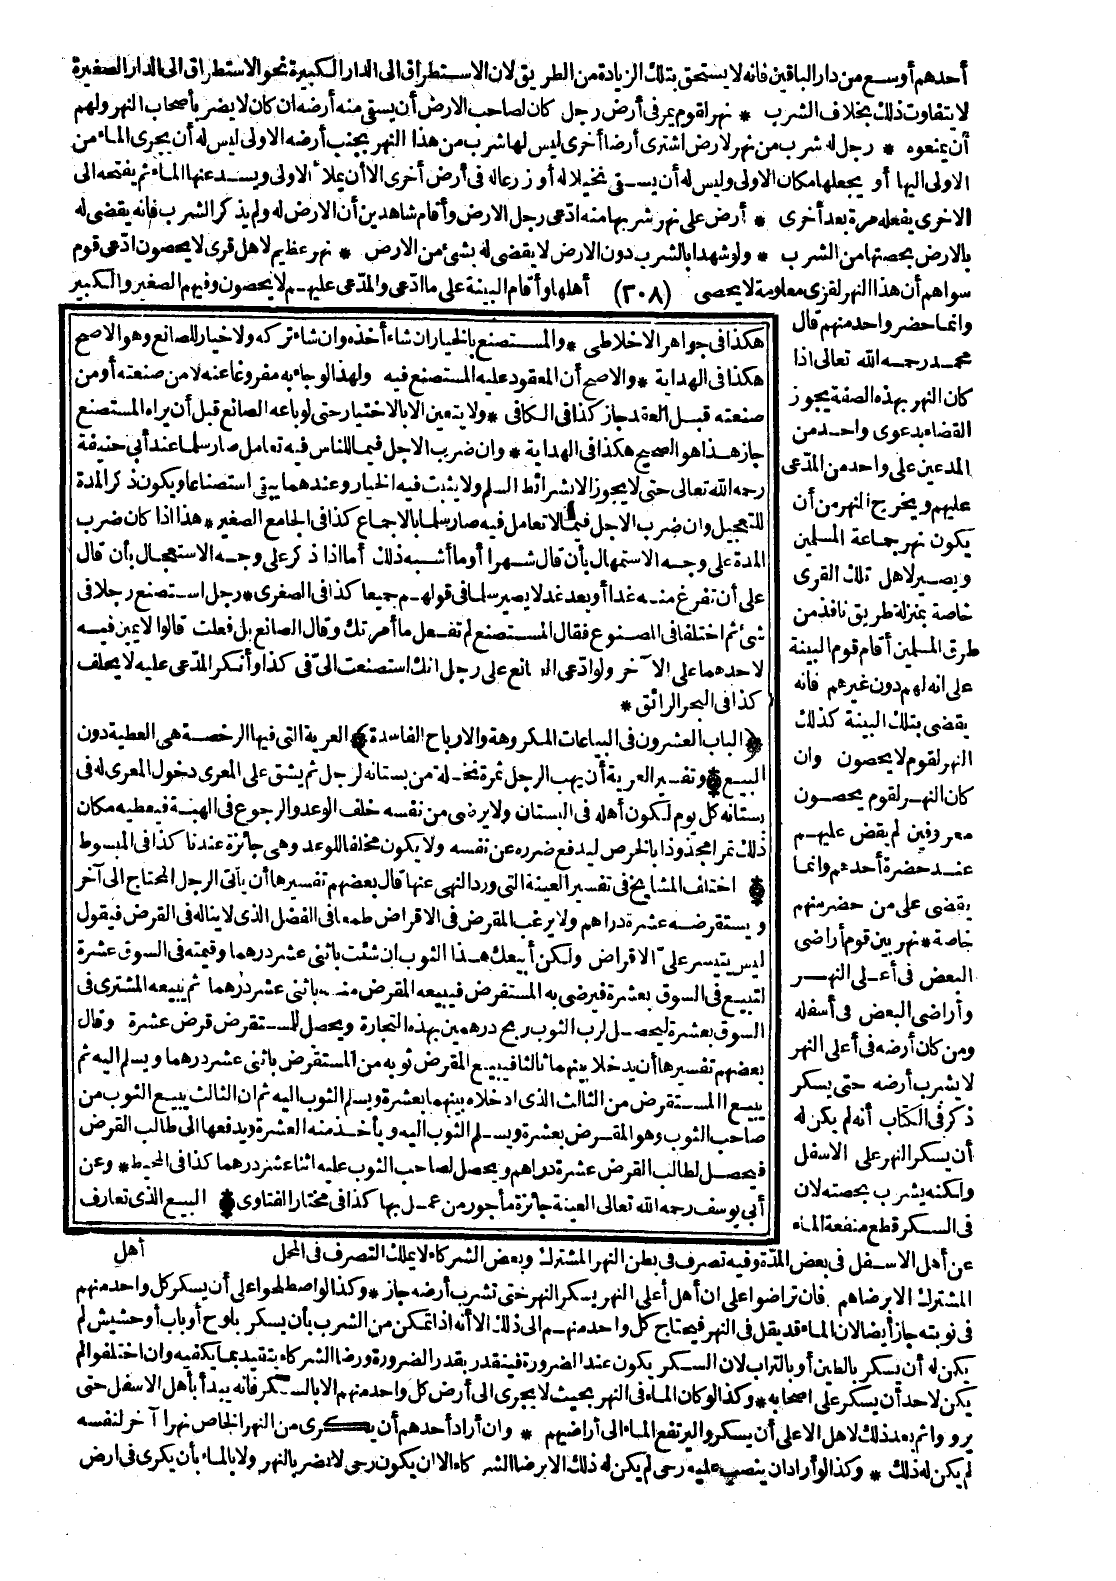 أحدهم أوسع من دار الباقين فانه لا يستحق بتلك الزيادة من الطريق لان الاستطراق الى الدار الكبيرة نحو الاستطراق الى الدار الصغيرة
لا يتفاوت ذلك بخلاف الشرب * نهر لقوم يمر فى أرض رجل كان لصاحب الارض أن يسقى منه أرضه ان كان لا يضر بأصحاب النهر ولهم
أن يمنعوه * رجل له شرب من نهر لارض اشترى أرضا أخرى ليس لها شرب من هذا النهر بجنب أرضه الاولى ليس له أن يجرى الماء من
الاولى اليها أو يجعلها مكان الاولى وليس له أن يسقى نخيلا له أو زرعا له فى أرض أخرى الا أن يملأ الاولى ويسد عنها الماء ثم يفتحه الى
الاخرى يفعله مرة بعد أخرى * أرض على نهر شربها منه ادّعى رجل الارض وأقام شاهدين أن الارض له ولم يذكر الشرب فانه يقضى له
بالارض بحصتها من الشرب * ولو شهدا بالشرب دون الارض لا يقضى له بشئ من الارض * نهر عظيم لاهل قرى لا يحصون ادّعى قوم
سواهم أن هذا النهر لقرى معلومة لا يحصى (٢٠٨) أهلها وأقام البينة على ما ادّعى والمدّعى عليهم لا يحصون وفيهم الصغير والكبير
وانما حضر واحد منهم قال
محمد رحمه الله تعالى اذا
كان النهر بهذه الصفة يجوز
القضاء بدعوى واحد من
المدعين على واحد من المدّعى
عليهم ويخرج النهر من أن
يكون نهر جماعة المسلمين
ويصير لاهل تلك القرى
خاصة بمنزلة طريق نافذ من
طرق المسلمين أقام قوم البينة
على انه لهم دون غيرهم فانه
يقضى بتلك البينة كذلك
النهر لقوم لا يحصون وان
كان النهر لقوم يحصون
معروفين لم يقض عليهم
عند حضرة أحدهم وانما
يقضى على من حضر منهم
خاصة * نهر بين قوم أراضى
البعض فى أعلى النهر
وأراضى البعض فى أسفله
ومن كان أرضه فى أعلى النهر
لا يشرب أرضه حتى يسكر
ذكر فى الكتاب أنه لم يكن له
أن يسكر النهر على الاسفل
ولكنه يشرب بحصته لان
فى السكر قطع منفعة الماء
هكذا فى جواهر الاخلاطى * والمستصنع بالخيار ان شاء أخذه وان شاء تركه ولا خيار للصانع وهو الاصح
هكذا فى الهداية * والاصح أن المعقود عليه المستصنع فيه ولهذا لو جاء به مفروغا عنه لا من صنعته أو من
صنعته قبل العقد جاز كذا فى الكافى * ولا يتعين الا بالاختيار حتى لو باعه الصانع قبل أن يراه المستصنع
جاز هذا هو الصحيح هكذا فى الهداية * وان ضرب الاجل فيما للناس فيه تعامل صار سلما عند أبى حنيفة
رحمه الله تعالى حتى لا يجوز الا بشرائط السلم ولا يثبت فيه الخيار وعندهما يبقى استصناعا ويكون ذكر المدة
للتعجيل وان ضرب الاجل فيما لا تعامل فيه صار سلما بالاجماع كذا فى الجامع الصغير * هذا اذا كان ضرب
المدة على وجه الاستمهال بأن قال شهرا أو ما أشبه ذلك أما اذا ذكر على وجه الاستعجال بأن قال
على أن تفرغ منه غدا أو بعد غد لا يصير سلما فى قولهم جميعا كذا فى الصغرى * رجل استصنع رجلا فى
شئ ثم اختلفا فى المصنوع فقال المستصنع لم تفعل ما أمرتك وقال الصانع بل فعلت قالوا لا يمين فيه
لاحدهما على الآخر ولو ادّعى الصانع على رجل انك استصنعت الىّ فى كذا وأنكر المدّعى عليه لا يحلف
كذا فى البحر الرائق *
﴿الباب العشرون فى البياعات المكروهة والارباح الفاسدة﴾ العرية التى فيها الرخصة هى العطية دون
البيع * وتفسير العرية أن يهب الرجل ثمرة نخلة من بستانه لرجل ثم يشق على المعرى دخول المعرى له فى
بستانه كل يوم لكون أهله فى البستان ولا يرضى من نفسه خلف الوعد والرجوع فى الهبة فيعطيه مكان
ذلك تمرا مجذوذا بالخرص ليدفع ضرره عن نفسه ولا يكون مخلفا للوعد وهى جائزة عندنا كذا فى المبسوط
* اختلف المشايخ فى تفسير العينة التى ورد النهى عنها قال بعضهم تفسيرها أن يأتى الرجل المحتاج الى آخر
ويستقرضه عشرة دراهم ولا يرغب المقرض فى الاقراض طمعا فى الفضل الذى لا يناله فى القرض فيقول
ليس يتيسر علىّ الاقراض ولكن أبيعك هذا الثوب ان شئت باثنى عشر درهما وقيمته فى السوق عشرة
لتبيع فى السوق بعشرة فيرضى به المستقرض فيبيعه المقرض منه باثنى عشر درهما ثم يبيعه المشترى فى
السوق بعشرة ليحصل لرب الثوب ربح درهمين بهذه التجارة ويحصل للمستقرض قرض عشرة وقال
بعضهم تفسيرها أن يدخلا بينهما ثالثا فيبيع المقرض ثوبه من المستقرض باثنى عشر درهما ويسلم اليه ثم
يبيع المستقرض من الثالث الذى ادخلاه بينهما بعشرة ويسلم الثوب اليه ثم ان الثالث يبيع الثوب من
صاحب الثوب وهو المقرض بعشرة ويسلم الثوب اليه ويأخذ منه العشرة ويدفعها الى طالب القرض
فيحصل لطالب القرض عشرة دراهم ويحصل لصاحب الثوب عليه اثنا عشر درهما كذا فى المحيط * وعن
أبى يوسف رحمه الله تعالى العينة جائزة مأجور من عمل بها كذا فى مختار الفتاوى * البيع الذى تعارف
أهل
عن أهل الاسفل فى بعض المدّة وفيه تصرف فى بطن النهر المشترك وبعض الشركاء لا يملك التصرف فى المحل
المشترك الا برضاهم فان تراضوا على ان أهل أعلى النهر يسكر النهر حتى تشرب أرضه جاز * وكذا لو اصطلحوا على أن يسكر كل واحد منهم
فى نوبته جاز أيضا لان الماء قد يقل فى النهر فيحتاج كل واحد منهم الى ذلك الا أنه اذا تمكن من الشرب بأن يسكر بلوح أو باب أو حشيش لم
يكن له أن يسكر بالطين أو بالتراب لان السكر يكون عند الضرورة فيتقدر بقدر الضرورة ورضا الشركاء يتقيد بما يكفيه وان اختلفوا لم
يكن لاحد أن يسكر على اصحابه * وكذا لو كان الماء فى النهر بحيث لا يجرى الى أرض كل واحد منهم الا بالسكر فانه يبدأ بأهل الاسفل حتى
يرووا ثم بعد ذلك لاهل الاعلى أن يسكروا ليرتفع الماء الى أراضيهم * وان أراد أحدهم أن يكرى من النهر الخاص نهرا آخر لنفسه
لم يكن له ذلك * وكذا لو أراد ان ينصب عليه رحى لم يكن له ذلك الا برضا الشركاء الا ان يكون رحى لا تضر بالنهر ولا بالماء بأن يكرى فى ارض